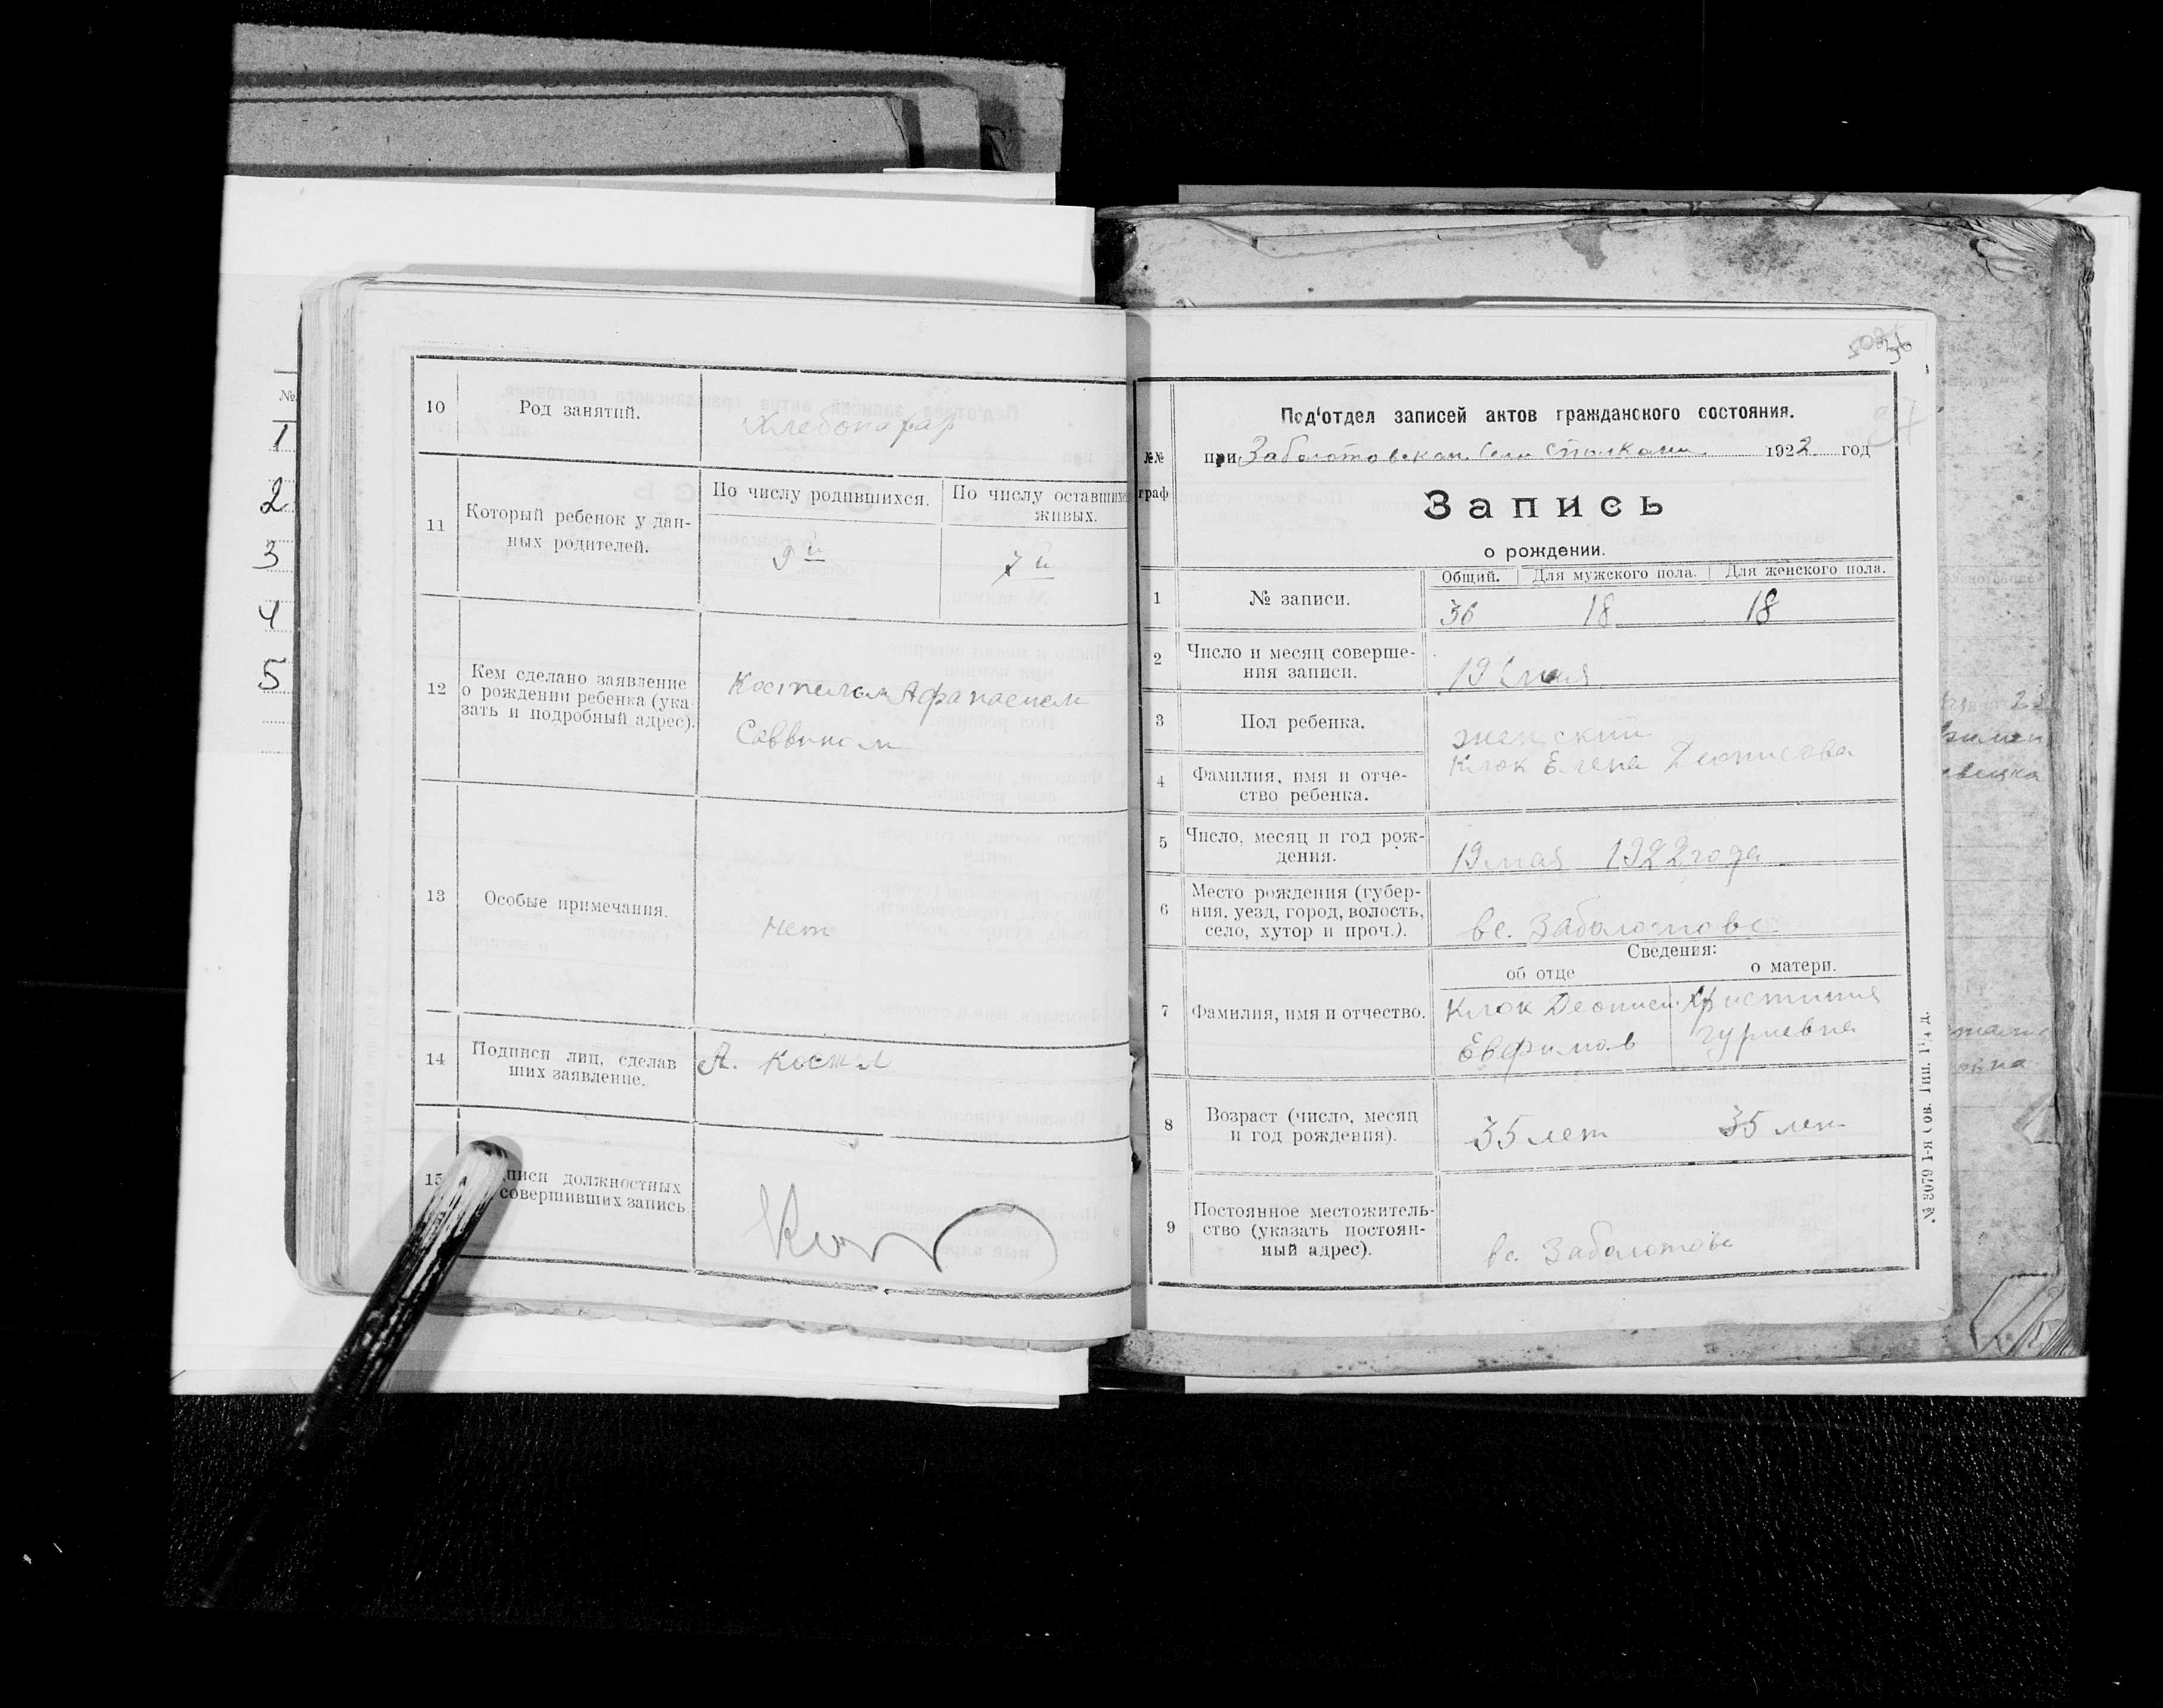 №
1
2
3
4
5
10
Род занятий.
Хлебопахар
11
Который ребенок у дан-
ных родителей.
По числу родившихся.
По числу оставшихся
живых.
9й
7й
12
Кем сделано заявление
о рождении ребенка (ука-
зать и подробный адрес).
Афанасием
Саввином
13
Особые примечания.
нет
14
Подписи лиц, сделав
ших заявление.
А. Костил
15
писи должностных
совершивших запись
36
Под'отдел записей актов гражданского состояния.
№№
граф
при Заболотовском 1922 год
Запись
о рождении.
Общий. Для мужского пола. Для женского пола.
1
№ записи.
36 18 18
2
Число и месяц соверше-
ния записи.
19 мая
3
Пол ребенка.
женский
4
Фамилия, имя и отче-
ство ребенка.
Клок Елена Деонисова
5
Число, месяц и год рож-
дения.
19 мая 1922 года
6
Место рождения (губер-
ния, уезд, город, волость,
село, хутор и проч.).
вс. Заболотове
Сведения:
об отце
о матери.
7
Фамилия, имя и отчество.
Клок Деониси
Евфимов
Христиния
гуриевна
8
Возраст (число, месяц
и год рождения).
35 лет
35 лет
9
Постоянное местожитель-
ство (указать постоян-
ный адрес).
вс. Заболотове
№ 3079 1-я Сов. Тип. 1¹/₄ д.